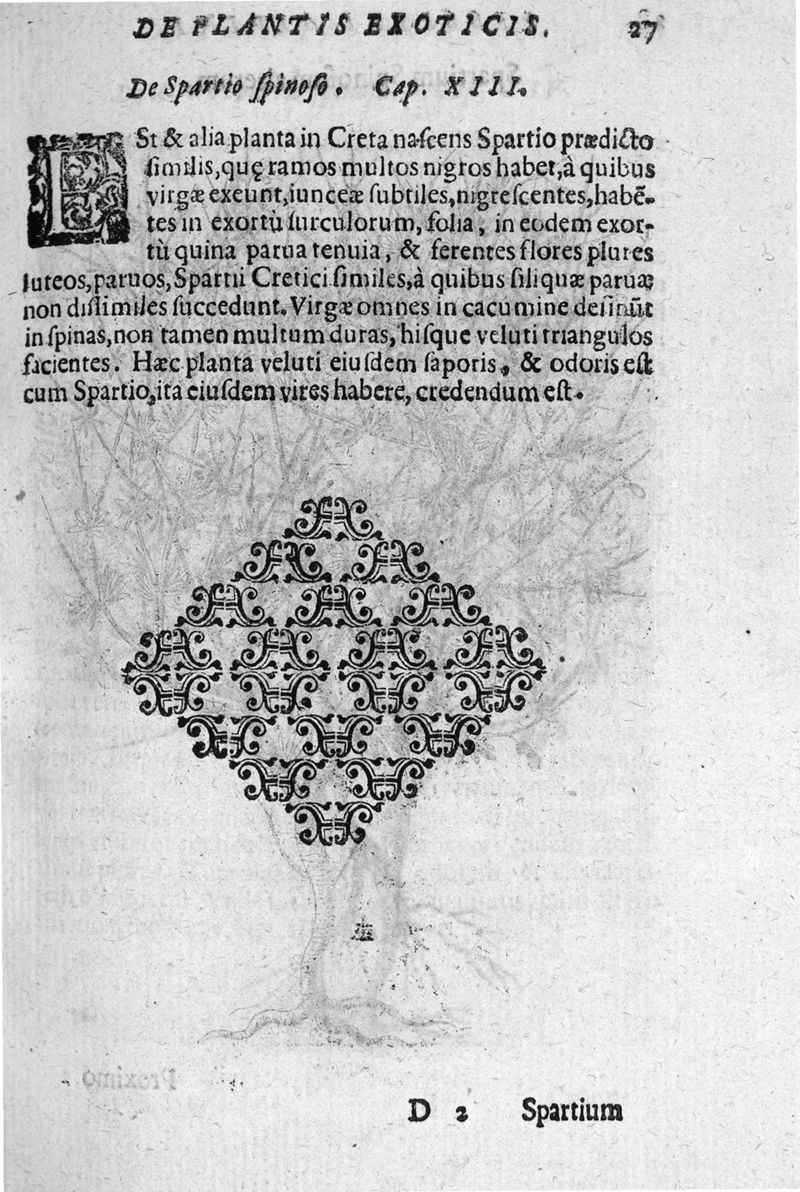 DE PLANTIS EXOTICIS. 27
De Spartio ſpinoſo. Cap. XIII.
ESt & alia planta in Creta naſcens Spartio prædicto
ſimilis, quę ramos multos nigros habet, à quibus
virgæ exeunt, iunceæ ſubtiles, nigreſcentes, habē-
tes in exortù ſurculorum, folia, in eodem exor-
tù quina parua tenuia, & ferentes flores plures
luteos, paruos, Spartii Cretici ſimiles, à quibus ſiliquæ paruæ
non diſſimiles ſuccedunt. Virgæ omnes in cacumine deſinūt
in ſpinas, non tamen multum duras, hiſque veluti triangulos
facientes. Hæc planta veluti eiuſdem ſaporis, & odoris eſt
cum Spartio, ita eiuſdem vires habere, credendum eſt.
D 2 Spartium